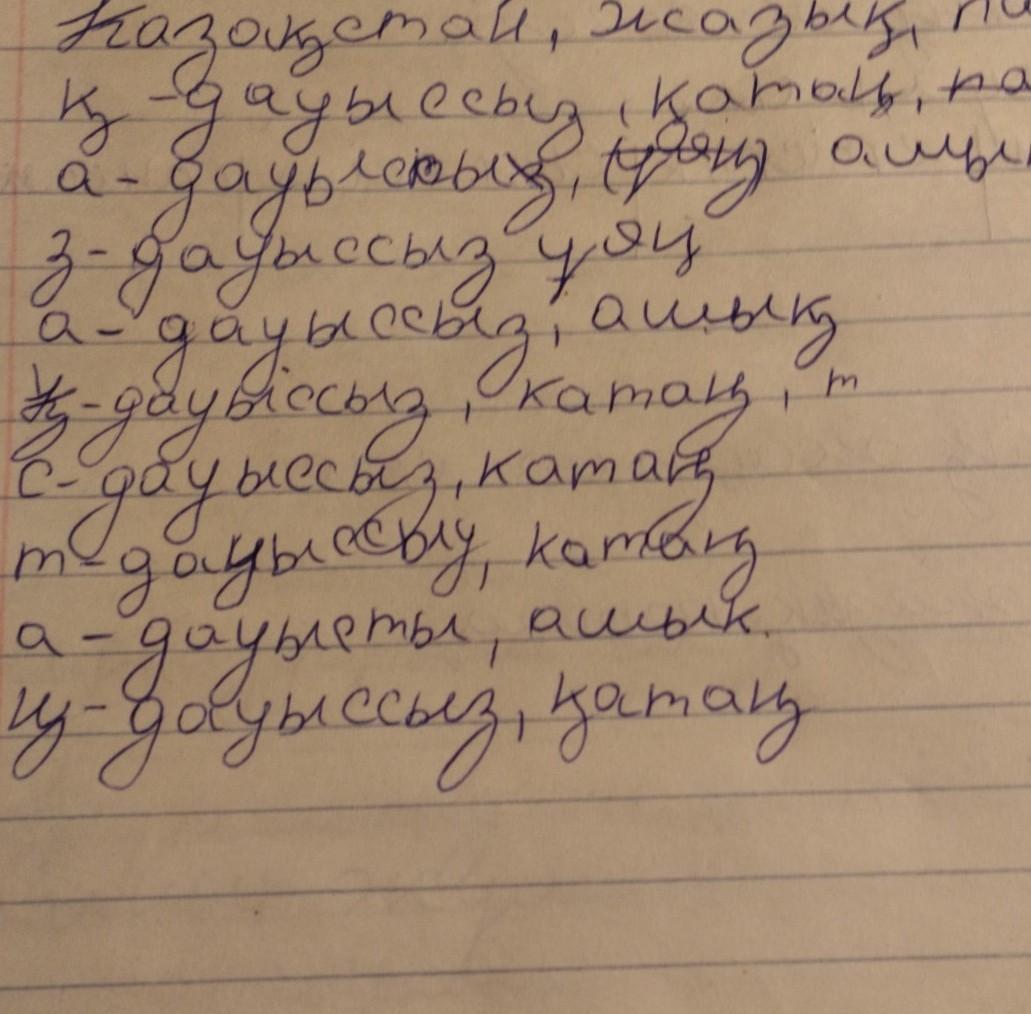 Казақстан, жазық, па
қ - дауыссыз, қатаң, па
а - дауыссыз, (ұяң) ашы
з - дауыссыз ұяң
а - дауыссыз, ашық
қ - дауыссыз, катаң, т
с - дауыссыз, катаң
т - дауыссыу, катаң
а - дауысты, ашык.
ң - дауыссыз, қатаң